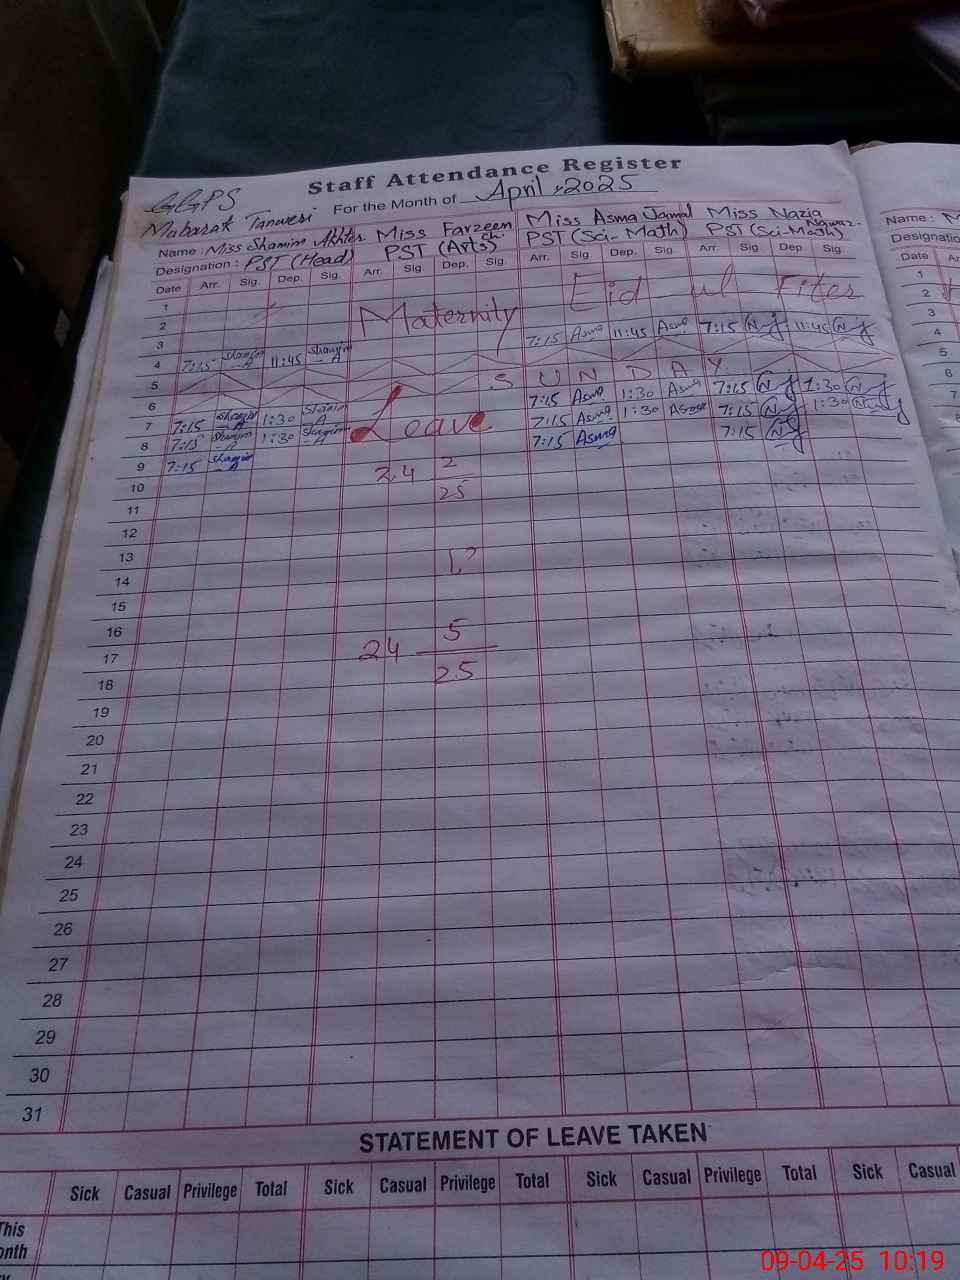 Staff Attendance Register
GGPS
For the Month of April, 2025
Mabarak Tanwesi
Name : Miss Shamim Akhter Miss Farzeen Miss Asma Jamal Miss Nazia Nawaz
Designation : PST (Head) PST (Arts) PST (Sci-Math) PST (Sci-Math)
Date Arr. Sig. Dep. Sig. Arr. Sig. Dep. Sig. Arr. Sig. Dep. Sig. Arr. Sig. Dep Sig.
1 Eid ul Fiter
2 Maternity
3
4 7:15 Shamim A 11:45 Shamim A 7:15 Asma 11:45 Asma 7:15 11:45
5
6 SUNDAY
7 7:15 Shamim A 1:30 Shamim A Leave 7:15 Asma 1:30 Asma 7:15 1:30
8 7:15 Shamim A 1:30 Shamim A 7:15 Asma 1:30 Asma 7:15 1:30
9 7:15 Shamim A 7:15 Asma 7:15
10 24 2
25
11
12
13
14
15
16 5
17 24
25
18
19
20
21
22
23
24
25
26
27
28
29
30
31
STATEMENT OF LEAVE TAKEN
Sick Casual Privilege Total Sick Casual Privilege Total Sick Casual Privilege Total Sick Casual
This
Name :
Designation
Date
1
2
3
4
5
6
7
09-04-25 10:19